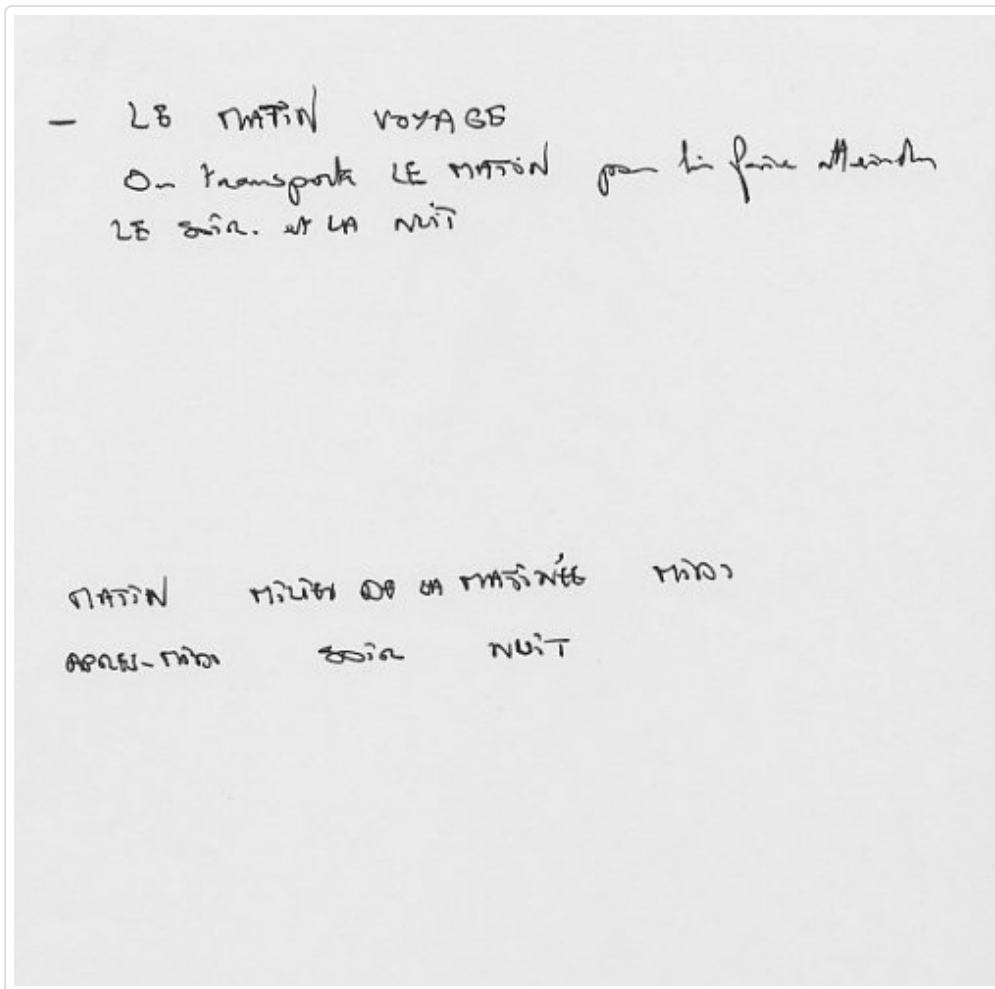 - LE MATIN VOYAGE
On transporte LE MATIN pour lui faire atteindre
LE SOIR. et LA NUIT
MATIN MILIEU DE LA MATINÉE MIDI
APRES-MIDI SOIR NUIT